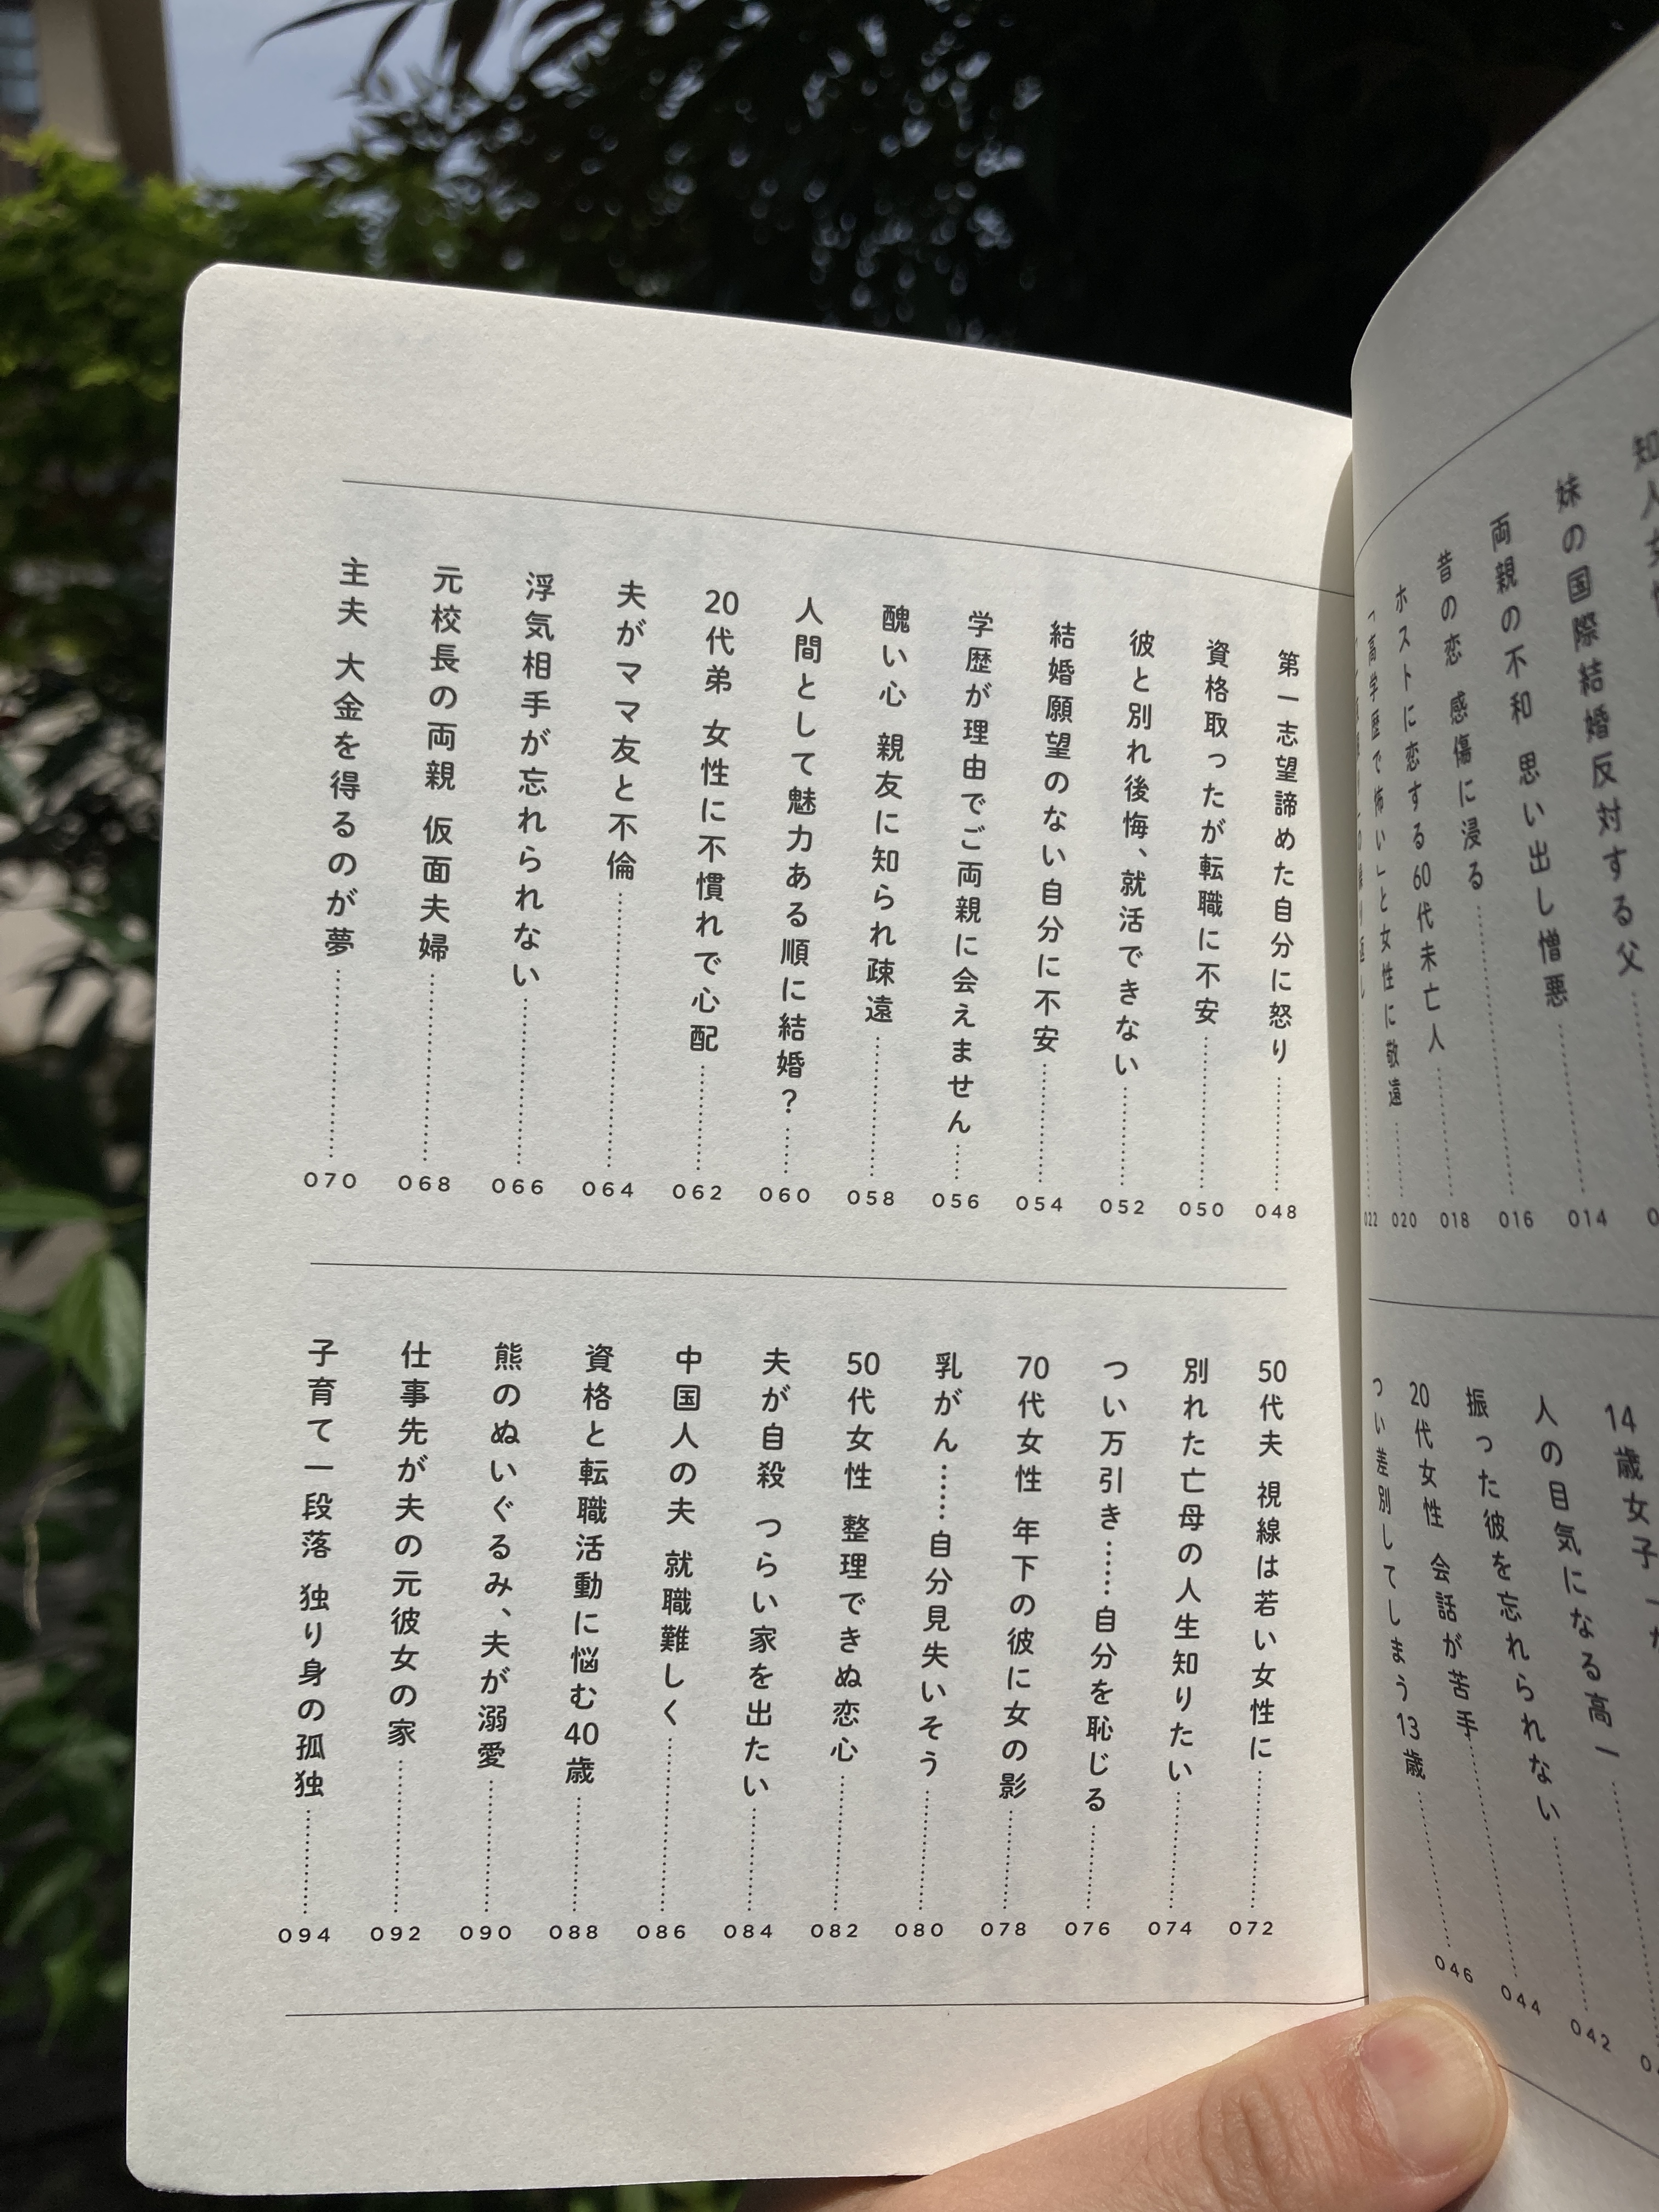 妹の国際結婚反対する父 014
両親の不和 思い出し憎悪 016
昔の恋 感傷に浸る 018
ホストに恋する60代未亡人 020
「高学歴で怖い」と女性に敬遠
022
14歳女子
人の目気になる高一 042
振った彼を忘れられない 044
20代女性 会話が苦手 046
つい差別してしまう13歳
第一志望諦めた自分に怒り 048
資格取ったが転職に不安 050
彼と別れ後悔、就活できない 052
結婚願望のない自分に不安 054
学歴が理由でご両親に会えません 056
醜い心 親友に知られ疎遠 058
人間として魅力ある順に結婚? 060
20代弟 女性に不慣れで心配 062
夫がママ友と不倫 064
浮気相手が忘れられない 066
元校長の両親 仮面夫婦 068
主夫 大金を得るのが夢 070
50代夫 視線は若い女性に 072
別れた亡母の人生知りたい 074
つい万引き……自分を恥じる 076
70代女性 年下の彼に女の影 078
乳がん……自分見失いそう 080
50代女性 整理できぬ恋心 082
夫が自殺 つらい家を出たい 084
中国人の夫 就職難しく 086
資格と転職活動に悩む40歳 088
熊のぬいぐるみ、夫が溺愛 090
仕事先が夫の元彼女の家 092
子育て一段落 独り身の孤独 094